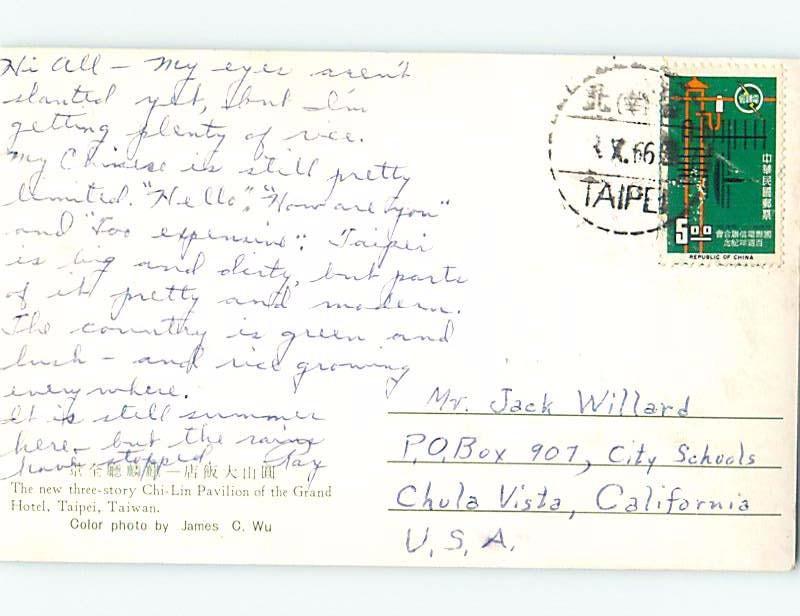 Hi All - My eyes aren't
slanted yet, but I'm
getting plenty of rice.
My Chinese is still pretty
limited. "Hello", "How are you"
and "Too expensive". Taipei
is big and dirty, but parts
of it pretty and modern.
The country is green and
lush - and rice growing
everywhere.
It is still summer
here - but the rains
have stopped. Fay
圓山大飯店—麒麟廳全景
The new three-story Chi-Lin Pavilion of the Grand
Hotel, Taipei, Taiwan.
Color photo by James C. Wu
北
X.66
TAIPEI
中華民國郵票
國際電信聯合會
百週年紀念
5.00
REPUBLIC OF CHINA
Mr. Jack Willard
P.O. Box 907, City Schools
Chula Vista, California
U.S.A.